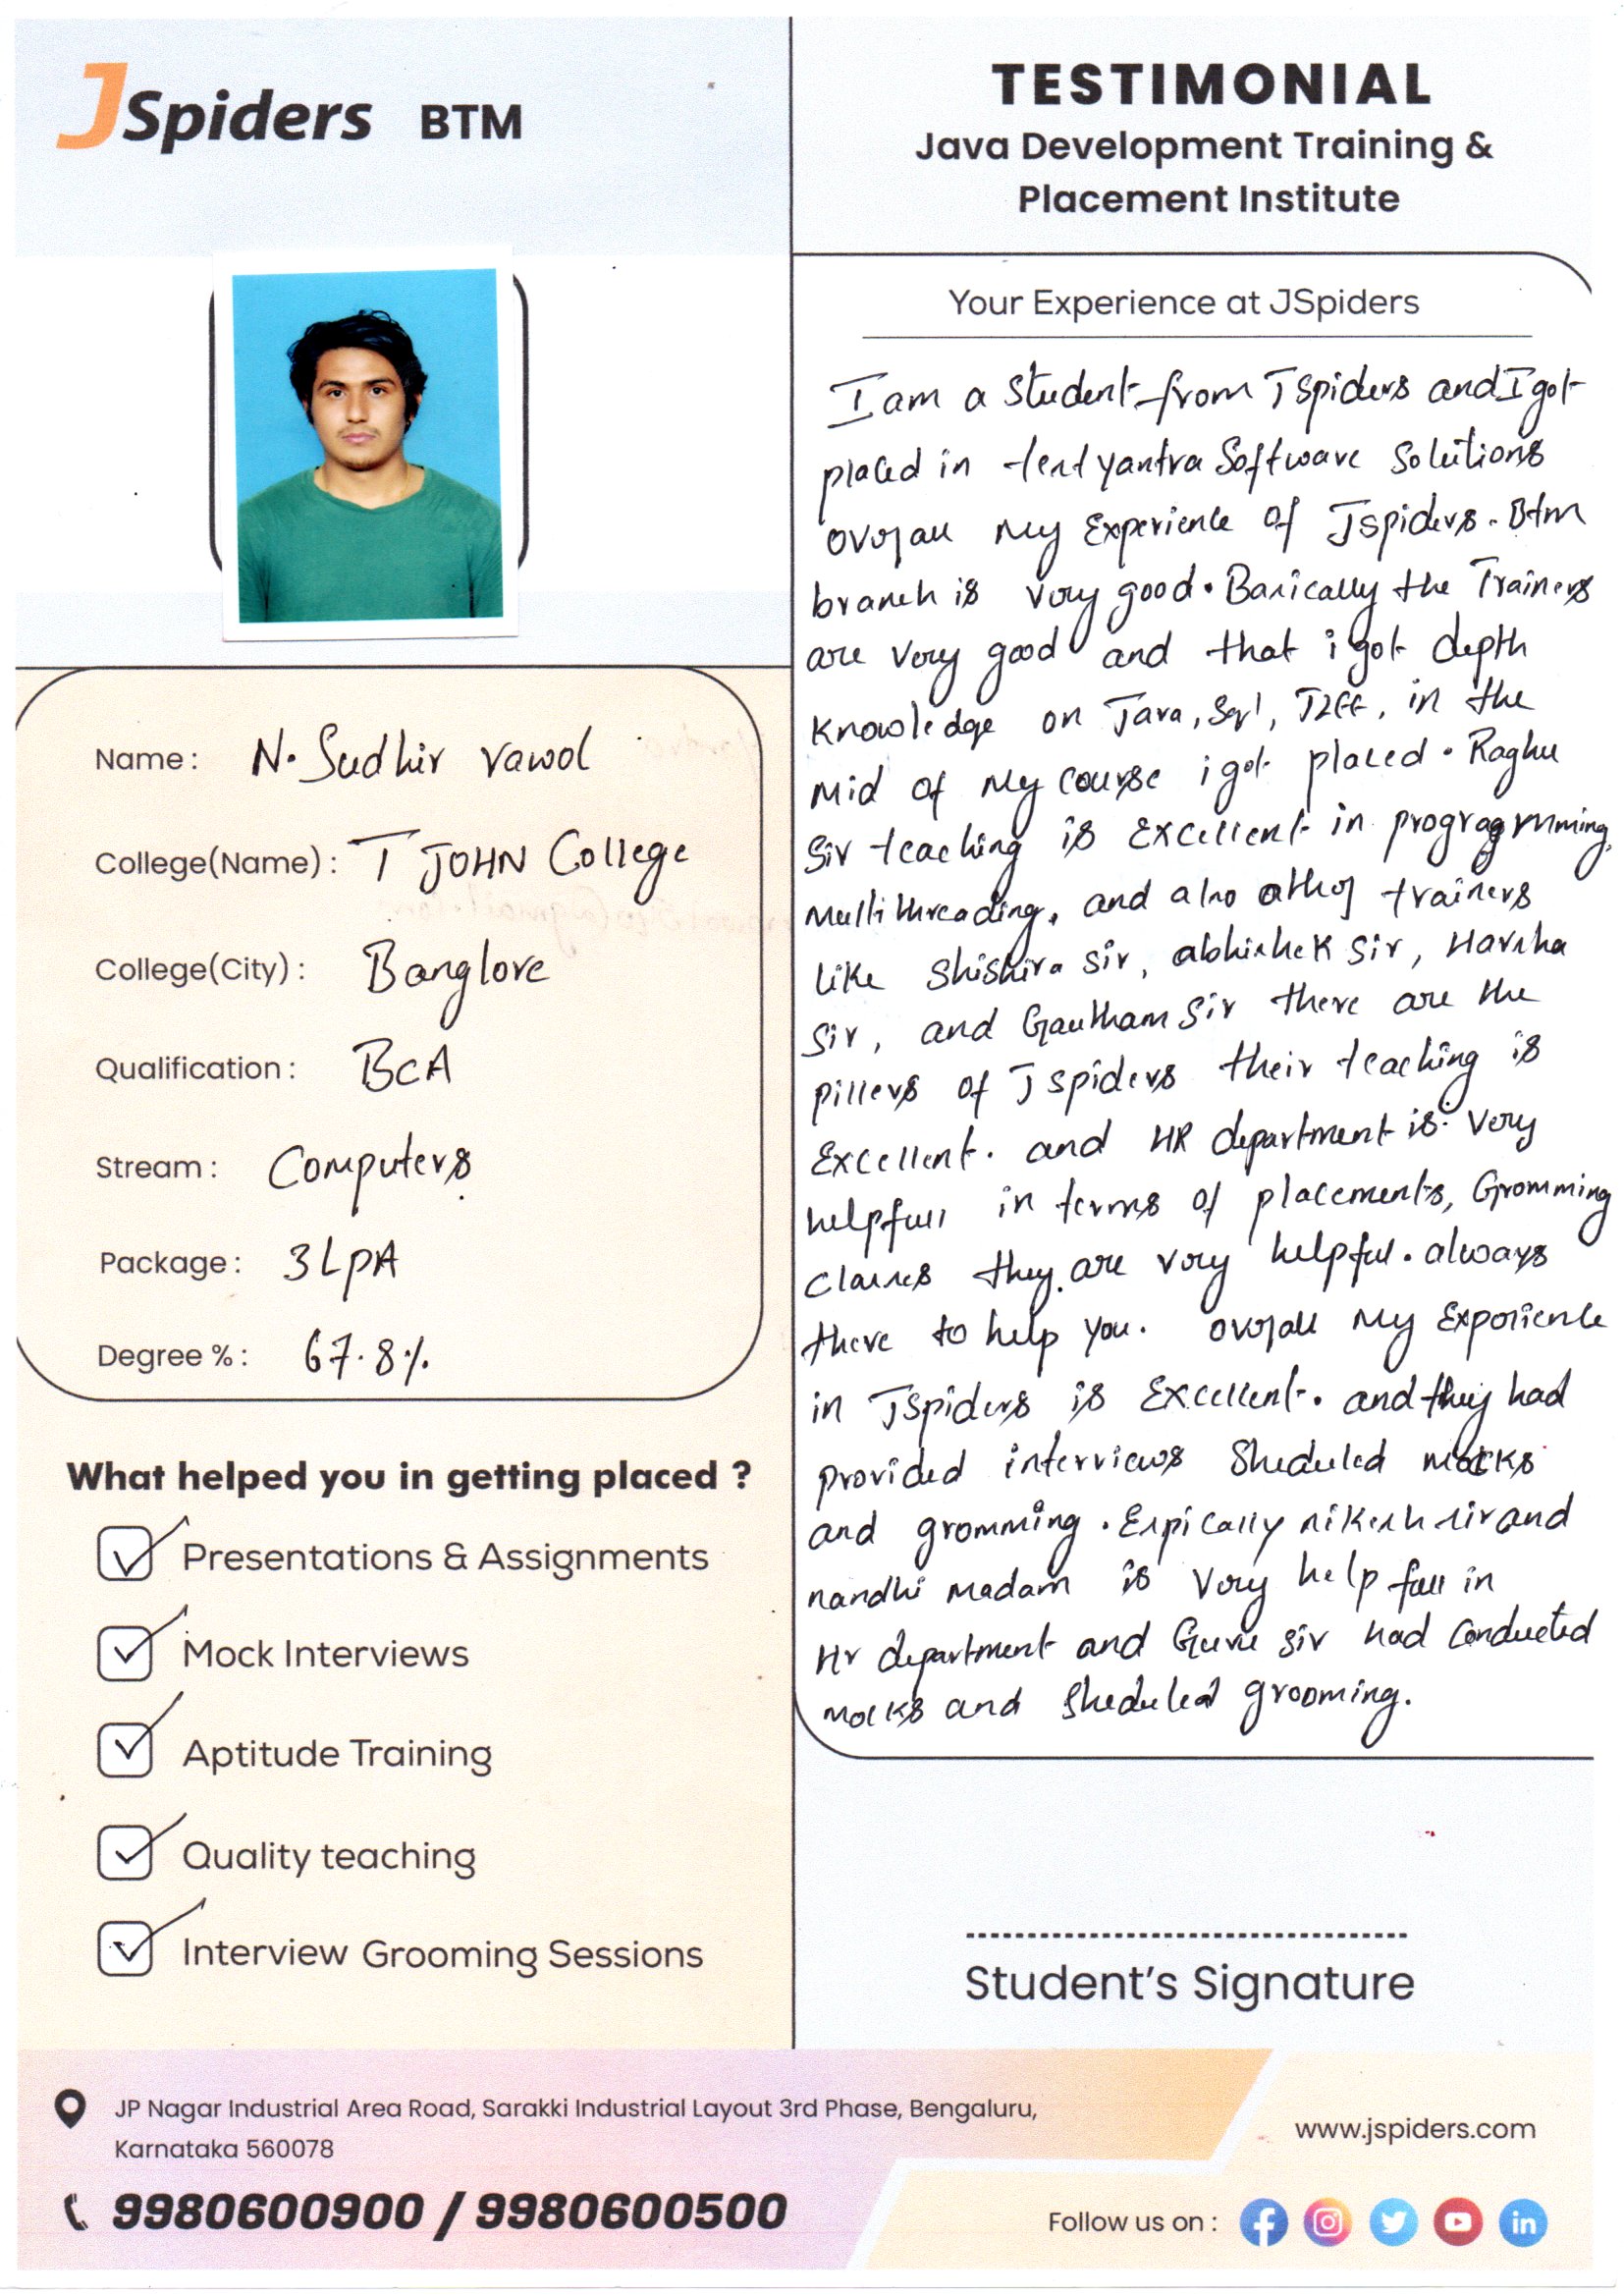 JSpiders BTM
TESTIMONIAL
Java Development Training &
Placement Institute
Name : N. Sudhir
College(Name) : T JOHN College
College(City) : Banglore
Qualification : BCA
Stream : Computers
Package : 3 LPA
Degree % : 67.8%
What helped you in getting placed ?
Presentations & Assignments
Mock Interviews
Aptitude Training
Quality teaching
Interview Grooming Sessions
Your Experience at JSpiders
I am a student from Jspiders and I got
placed in yantra Software Solutions
overall my Experience of Jspiders. Btm
branch is very good. Basically the Trainers
are very good and that i got depth
knowledge on Java, Sql, J2EE, in the
mid of my course i got placed. Raghu
Sir teaching is Excellent in programming,
multithreading, and also other trainers
like Shishira sir, abhishek sir, Harsha
Sir, and Gautham Sir there are the
pillers of Jspiders their teaching is
Excellent. and HR department is very
helpfull in terms of placements, Gromming
classes they are very helpful. always
there to help you. overall my Experience
in Jspiders is Excellent. and they had
provided interviews Sheduled mocks
and gromming. Espically nikesh sir and
nandhi madam is very helpfull in
Hr department and Guru sir had conducted
mocks and sheduled grooming.
Student's Signature
JP Nagar Industrial Area Road, Sarakki Industrial Layout 3rd Phase, Bengaluru,
Karnataka 560078
9980600900 / 9980600500
www.jspiders.com
Follow us on :